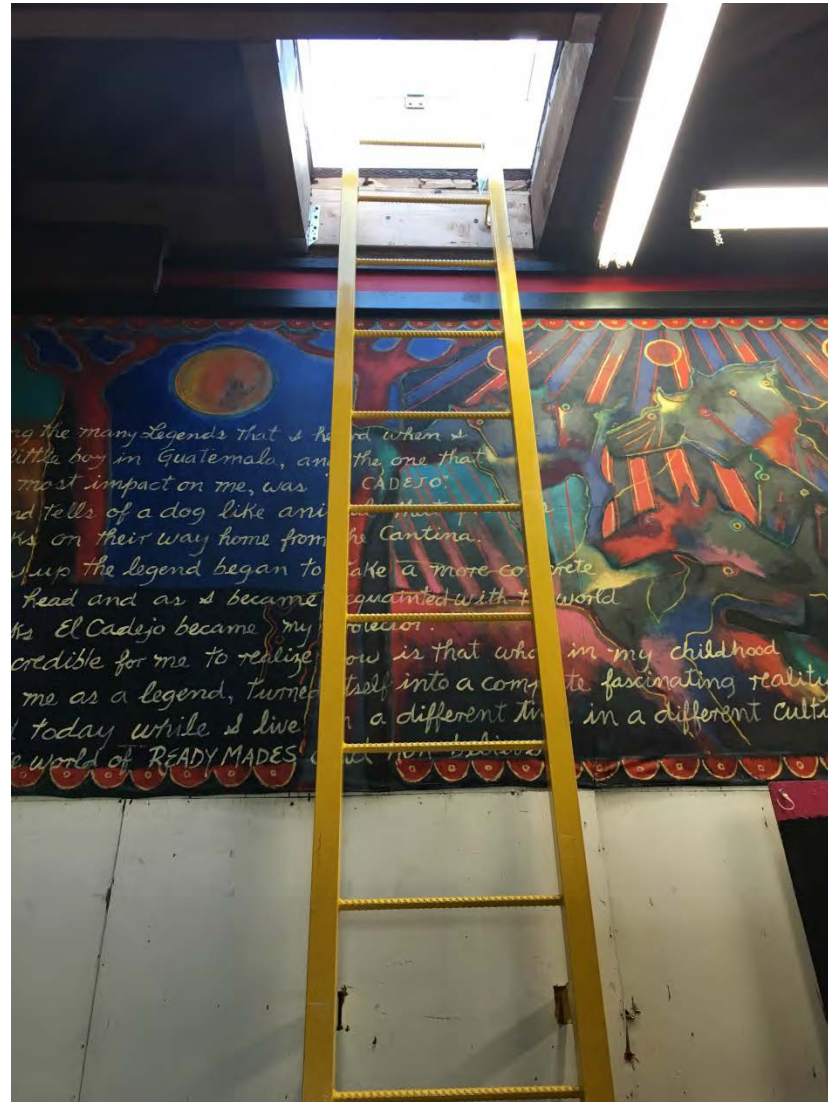 ng the many Legends that I heard when I
little boy in Guatemala, and the one that
most impact on me, was CADEJO.
nd tells of a dog like
ks on their way home from the Cantina.
w up the legend began to take a more concrete
head and as I became acquainted with the world
ks El Cadejo became my
credible for me to realize now is that what in my childhood
me as a legend, turned itself into a complete fascinating reality
today while I live in a different time in a different Cultu
e world of READY MADES and non